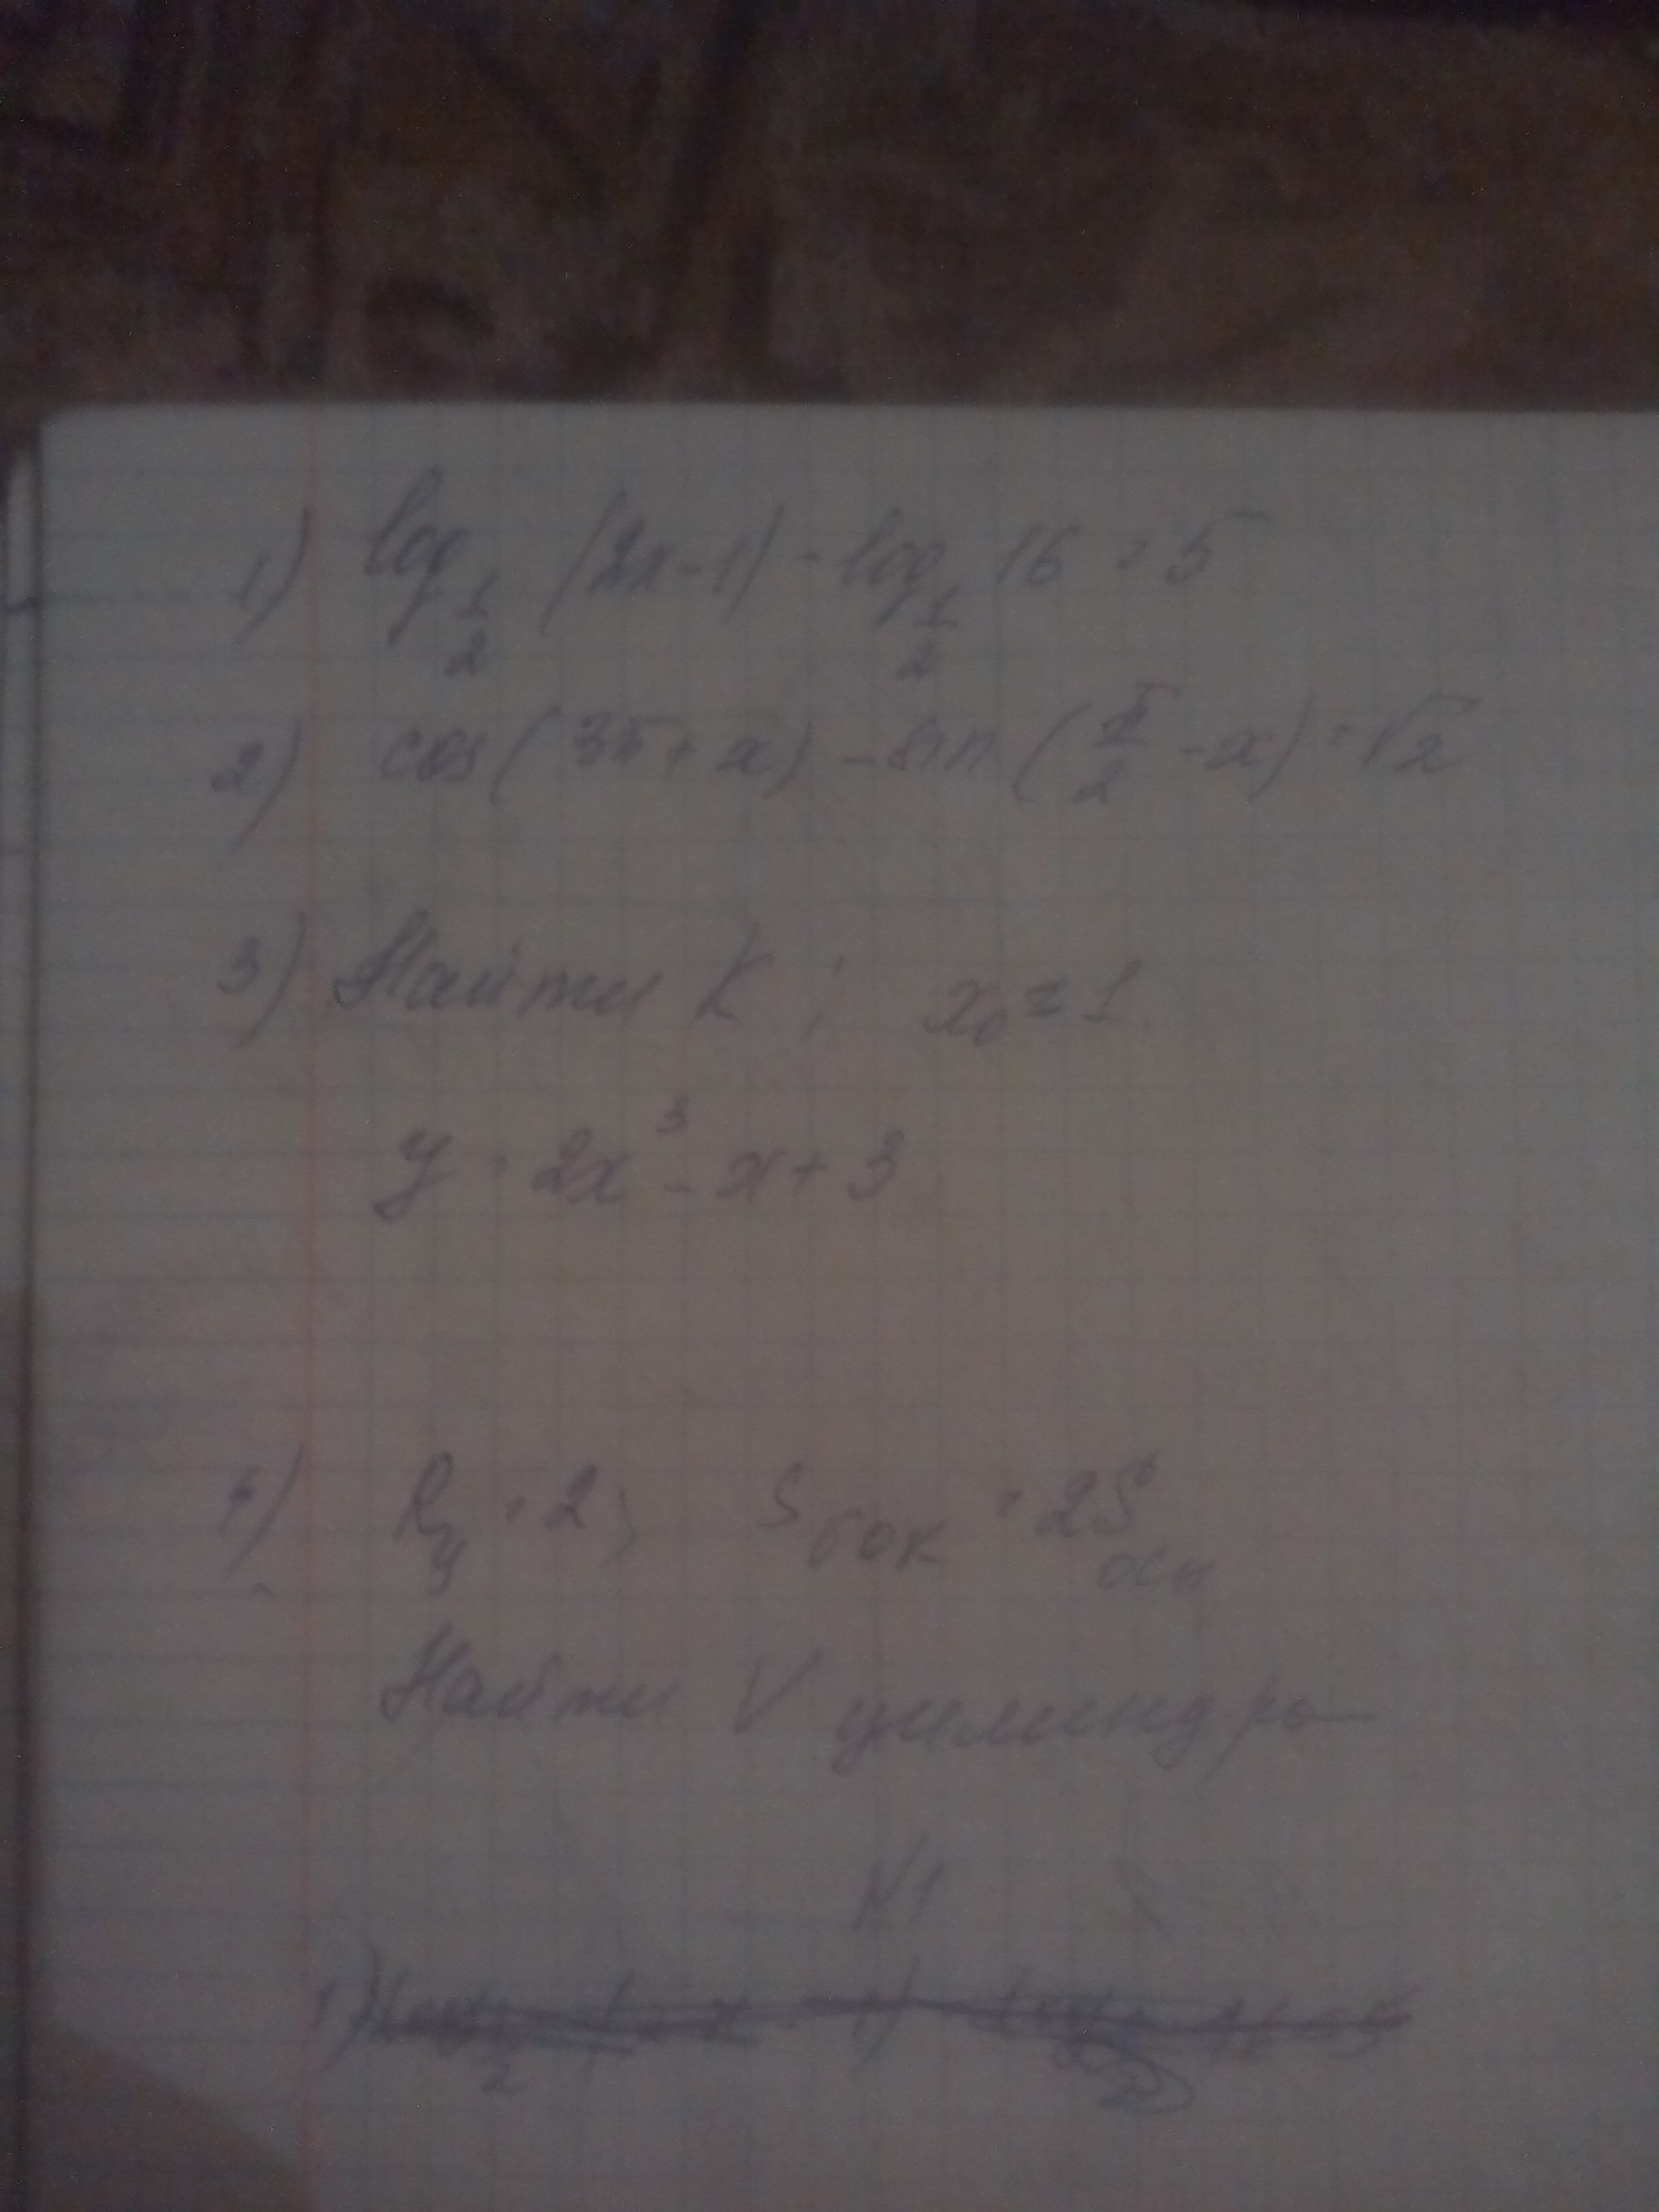 1) log 1/2 (2x-1) - log 1/2 16 = 5
2) cos(3π+x) - sin(π/2 - x) = √2
3) Найти k; x₀ = 1
y = 2x³ - x + 3
4) Rц = 2; Sбок = 2Sосн
Найти V цилиндра
N1